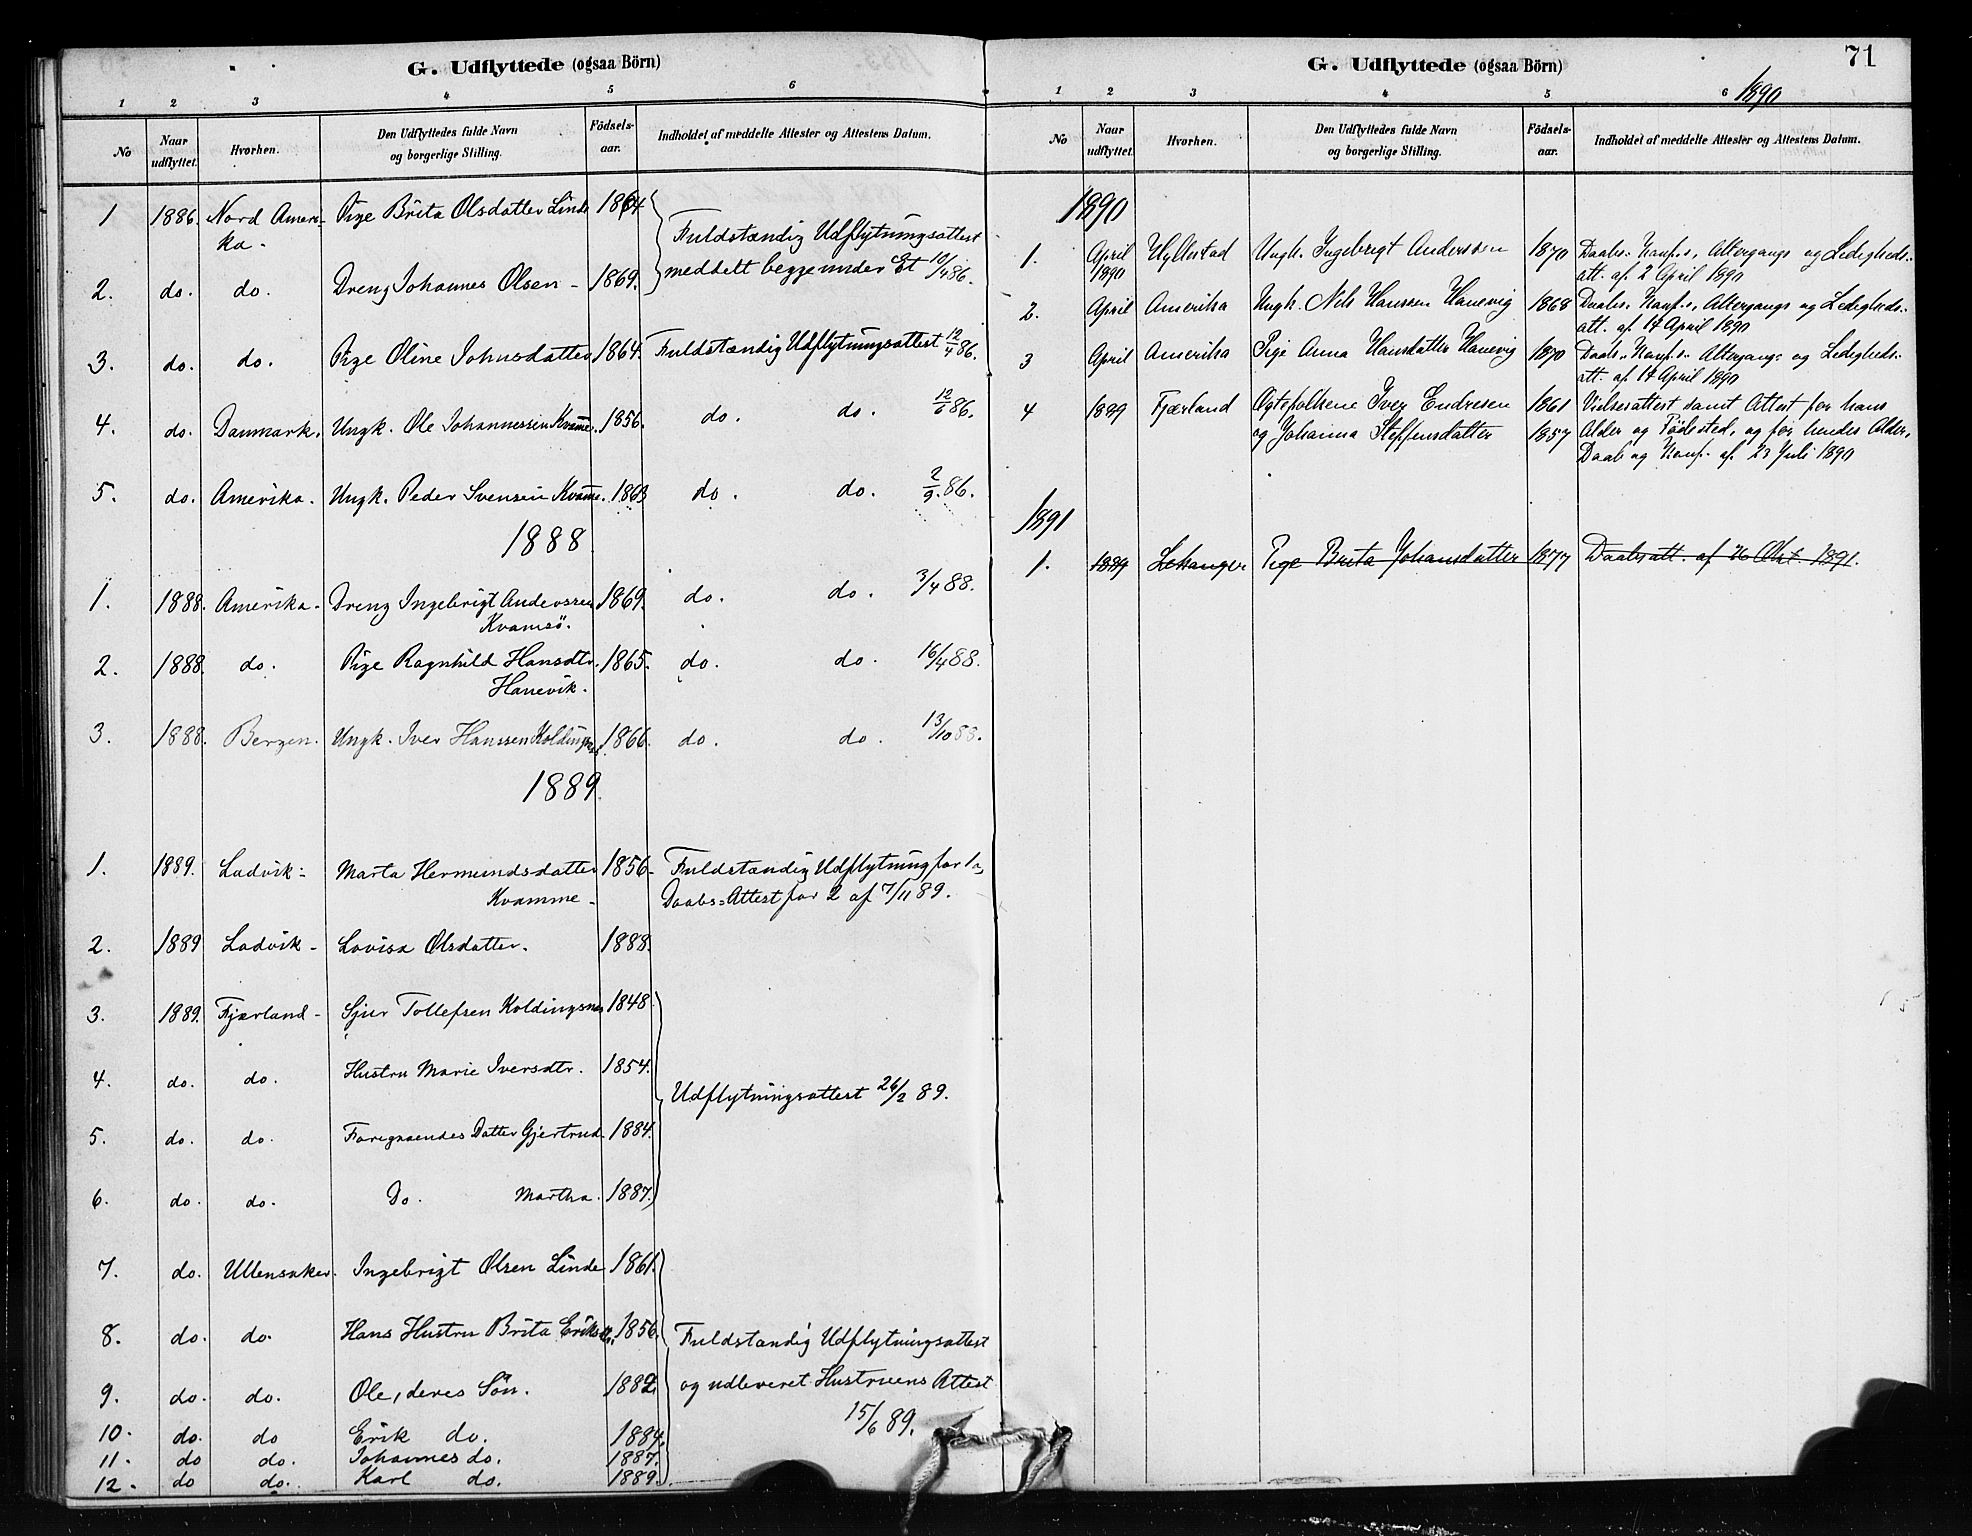 G. Udflyttede (ogsaa Börn)
1 2 3 4 5 6
No Naar udflyttet. Hvorhen. Den Udflyttedes fulde Navn og borgerlige Stilling. Födsels-aar. Indholdet af meddelte Attester og Attestens Datum.
1 1886. Nord Ameri- Pige Brita Olsdatter Linde 1864
ka - Fuldstændig Udflytningsattest
2. do. do. Dreng Johannes Olsen - 1869. meddelt begge under Et 10/4 86.
3. do. do. Pige Oline Johnsdatter 1864. Fuldstændig Udflytningsattest 12/4 86.
4. do. Danmark. Ungk. Ole Johannessen Kvamme. 1856. do. do. 12/6 86.
5. do. Amerika. Ungk. Peder Svensen Kvamme. 1863 do. do. 2/9. 86.
1888
1. 1888. Amerika. Dreng Ingebrigt Anderssen 1869. do. do. 3/4 88.
Kvamsö.
2. 1888. do. Pige Ragnhild Hansdtr. 1865. do. do. 16/4 88.
Hanevik.
3. 1888. Bergen. Ungk. Iver Hanssen Koldingsnes 1866. do. do. 13/10 88.
1889
1. 1889. Ladvik - Marta Hermundsdatter 1856- Fuldstændig Udflytning for 1 og
Kvamme - Daabs-Attest for 2 af 7/11 89.
2. 1889 Ladvik - Lovisa Olsdatter. 1888.
3. 1889. Fjærland - Sjur Tollefsen Koldingsnes 1848.
4. do. do. Hustru Marie Iversdtr. 1854.
Udflytningsattest 26/2 89.
5. do. do. Foregaaendes Datter Gjertrud 1884.
6. do. do. Do. Martha. 1887.
7. do. Ullensaker. Ingebrigt Olsen Linde 1861.
8. do. do. Hans Hustru Brita Eriksdtr. 1856. Fuldstændig Udflytningsattest
9. do. do. Ole, deres Sön. 1882. og udleveret Hustruens Attest
15/6 89.
10. do. do Erik do. 1884.
11. do do. Johannes do. 1887.
12. do do. Karl do. 1889.
71
G. Udflyttede (ogsaa Börn)
1 2 3 4 5 6 1890
No Naar udflyttet. Hvorhen. Den Udflyttedes fulde Navn og borgerlige Stilling. Födsels-aar. Indholdet af meddelte Attester og Attestens Datum.
1890
1. April Hyllestad Ungk. Ingebrigt Anderssen 1870 Daabs-, Konf.s, Altergangs og Ledigheds-
1890 att. af 2 April 1890
2. April Amerika Ungk. Nils Hanssen Hanevig 1868 Daabs-, Konf.s, Altergangs og Ledigheds-
att. af 14 April 1890
3 April Amerika Pige Anna Hansdatter Hanevig 1870 Daabs-, Konf.s Altergangs og Ledigheds-
att. af 14 April 1890
4 1889 Fjærland Ægtefolkene Iver Endresen 1861 Vielsesattest samt Attest for hans
og Johanna Steffensdatter 1857 Alder og Födested, og for hendes Alder,
Daab og Konf. af 23 Juli 1890
1891
1. 1889 Lekanger Pige Brita Johansdatter 1877 Daabsatt. af 26 Okt. 1891.